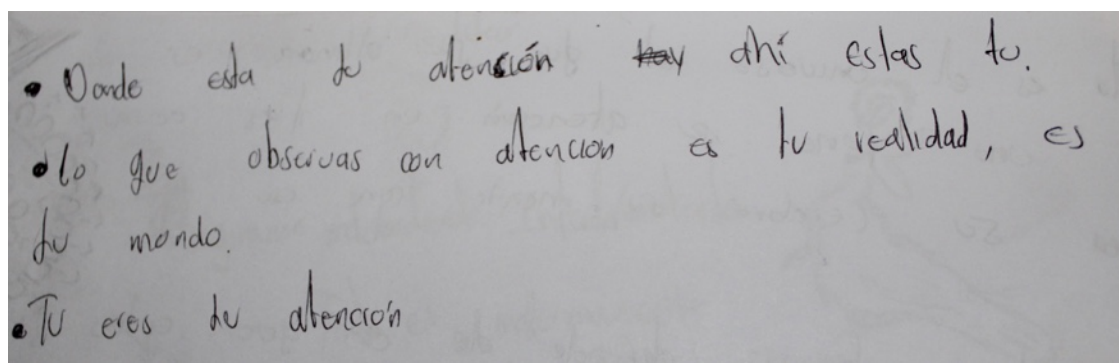 • Donde esta tu atención hay ahí estas tu.
• lo que observas con atencion es tu realidad, es
tu mundo.
• Tu eres tu atención